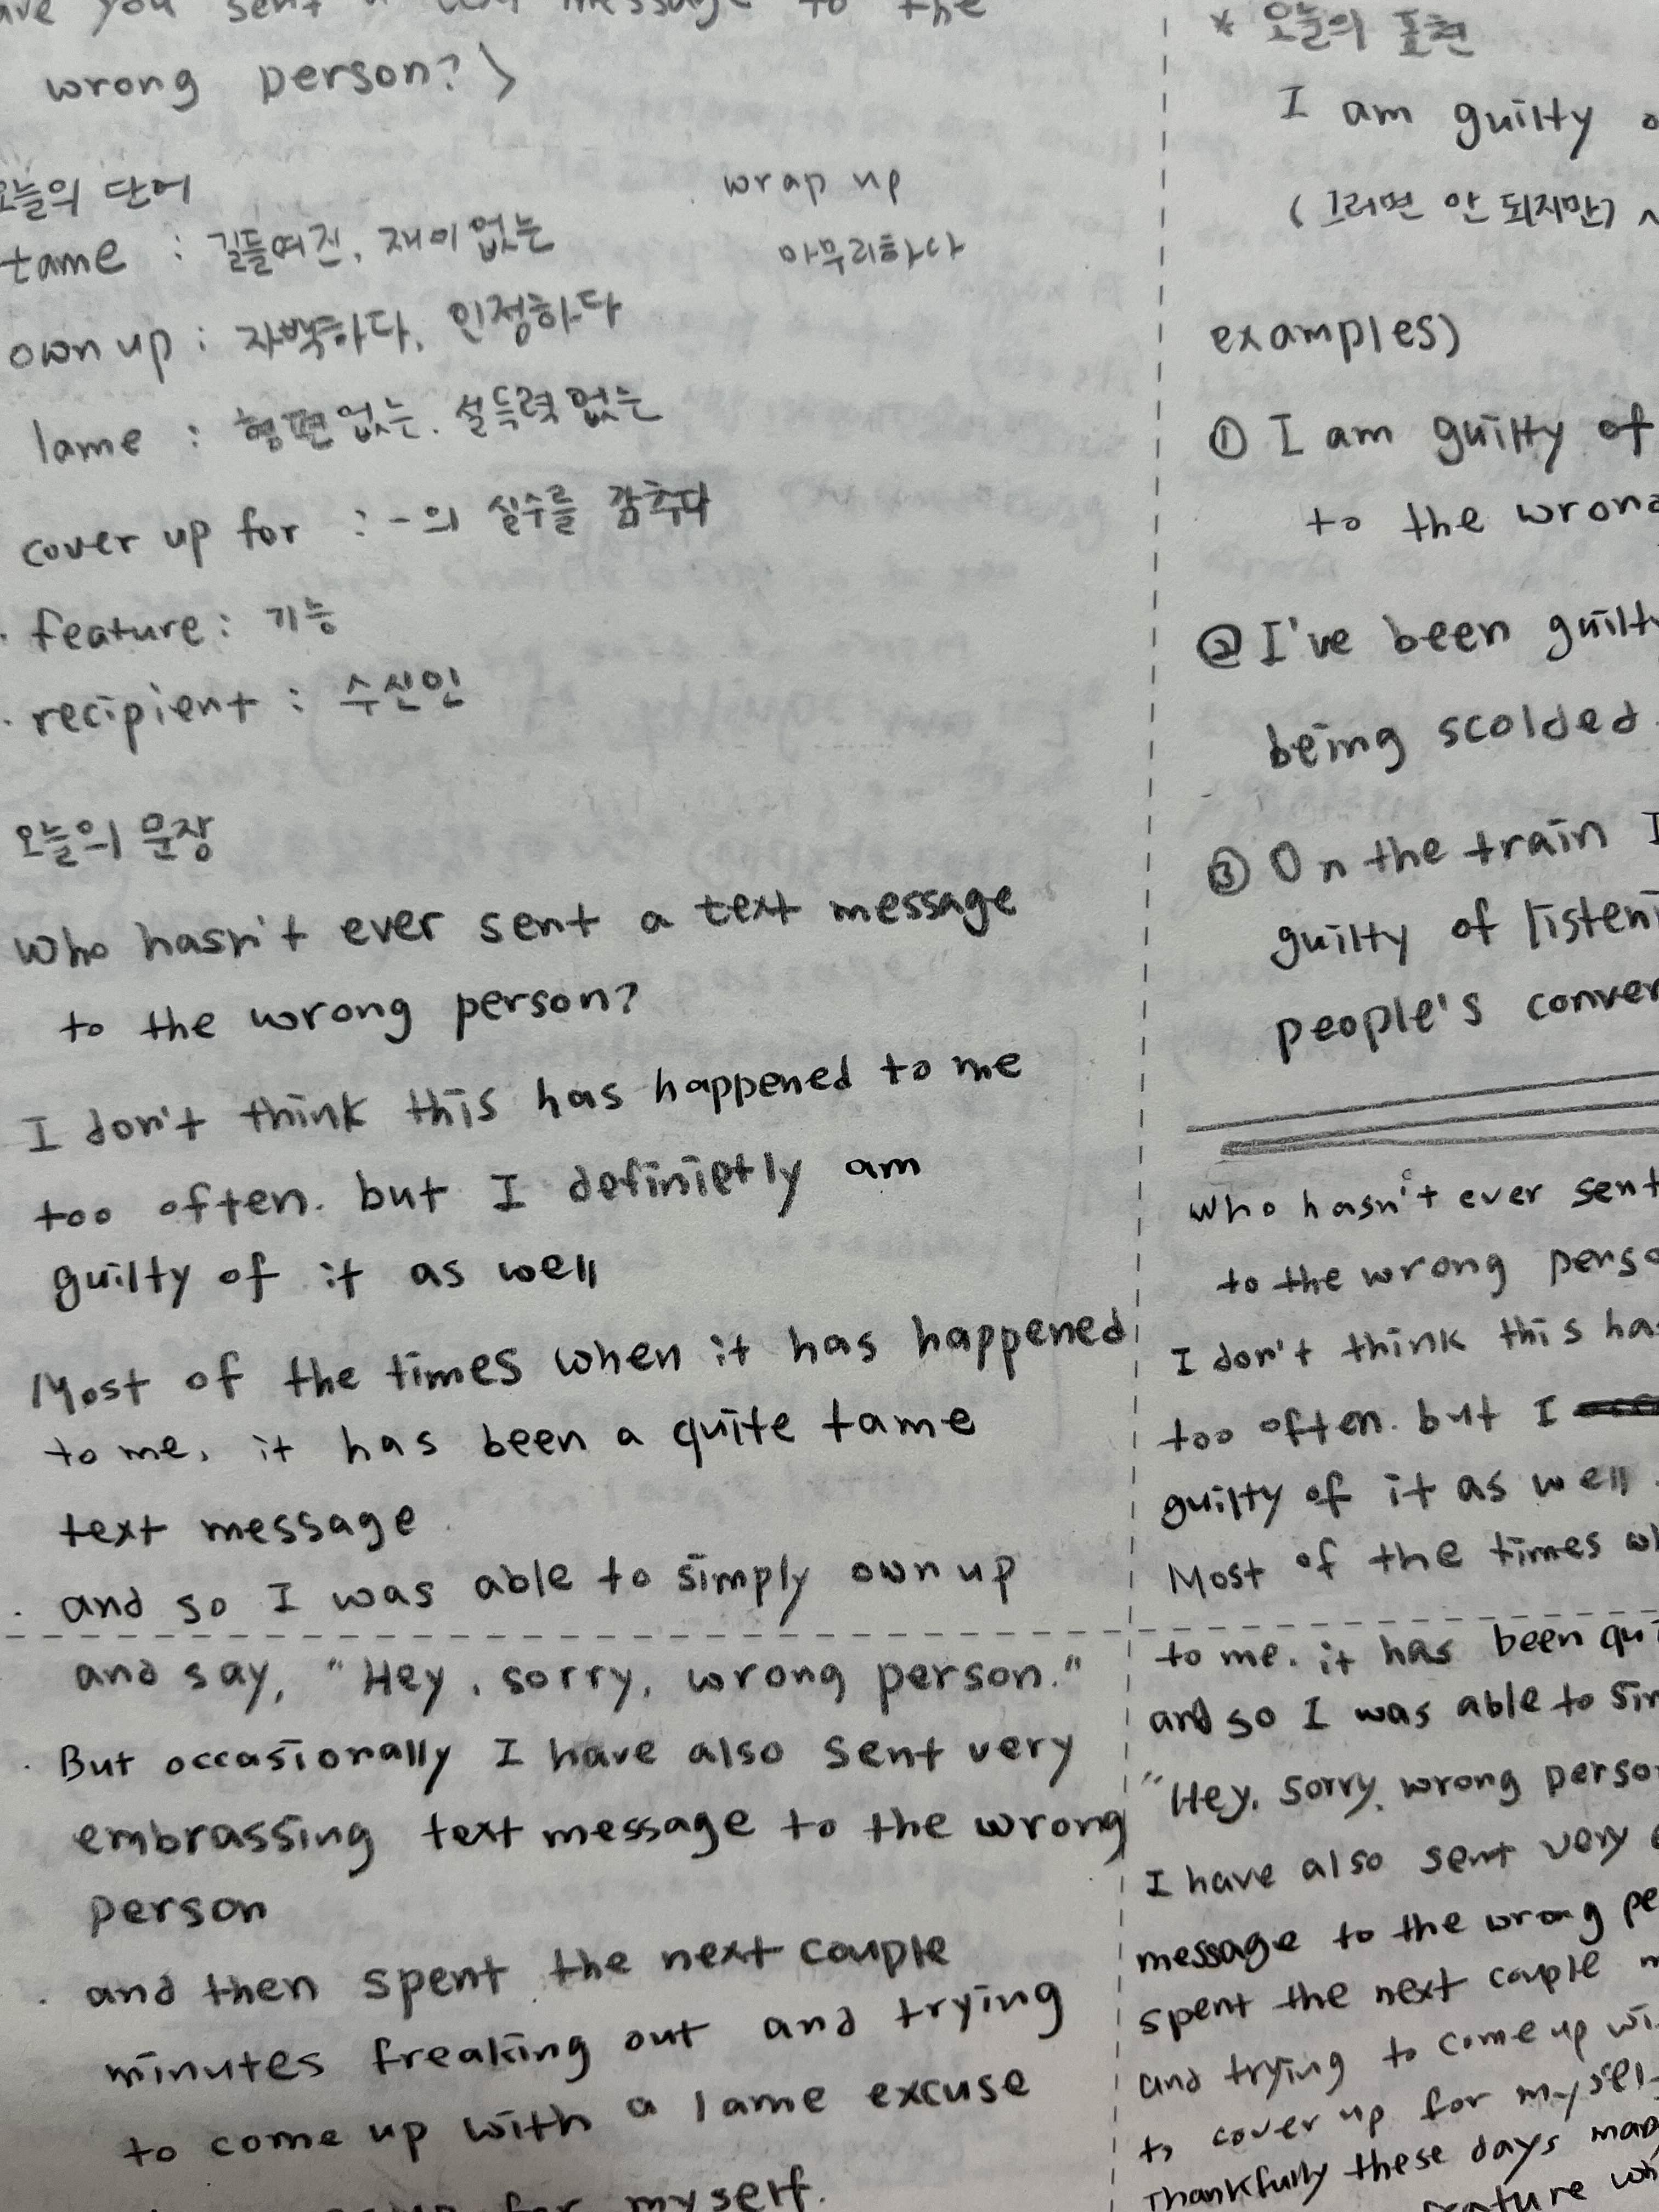 you sent a text message to the
wrong person?>
오늘의 단어
wrap up
tame : 길들여진, 재미없는
마무리하다
own up : 자백하다, 인정하다
lame : 형편없는. 설득력 없는
cover up for : -의 실수를 감추다
· feature : 기능
· recipient : 수신인
오늘의 문장
Who hasn't ever sent a text message
to the wrong person?
I don't think this has happened to me
too often. but I definietly am
guilty of it as well
Most of the times when it has happened
to me, it has been a quite tame
text message.
· and so I was able to simply own up
and say, "Hey, sorry, wrong person."
· But occasionally I have also sent very
embrassing text message to the wrong
person
· and then spent the next couple
minutes freaking out and trying
to come up with a lame excuse
for myself.
* 오늘의 표현
I am guilty
(그러면 안 되지만) ~
examples)
① I am guilty of
to the wrong
② I've been guilty
being scolded.
③ On the train I
guilty of listeni
people's conver
Who hasn't ever sent
to the wrong perso
I don't think this has
too often. but I
guilty of it as well.
Most of the times wh
to me. it has been qui
and so I was able to sim
"Hey, sorry, wrong perso
I have also sent very e
message to the wrong pe
spent the next couple m
and trying to come up wi
to cover up for myself
Thankfully these days many
feature wh